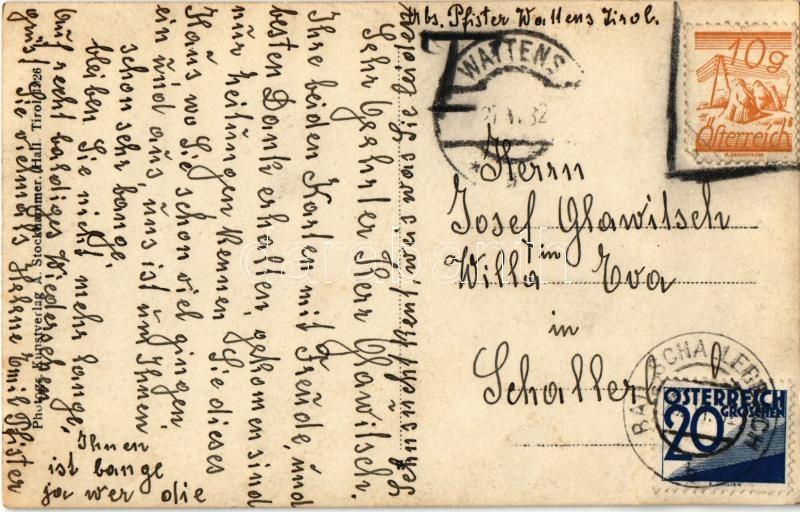 Arbs. Pfister Wattens Tirol.
Sehr Geehrter Herr Glawitsch.
Ihre beiden Karten mit Freude, und
besten Dank erhalten, gekomen sind
nur Zeitungen kennen Sie dieses
Haus, wo Sie schon viel gingen,
ein und aus, uns ist um Ihnen
schon sehr bange.
bleiben Sie nicht mehr lange,
auf recht baldiges Wiedersehen
grüst Sie vielmals Helene Emil Pfister
Ihnen
ist bange
ja wer die
Photogr. Kunstverlag A. Stockhammer, Hall. Tirol 1926
WATTENS
Herrn
Josef Glawitsch
in
Willa Eva
in
Schallerb
10g
Österreich
BAD SCHALLERBACH
ÖSTERREICH
20
GROSCHEN
darabanth